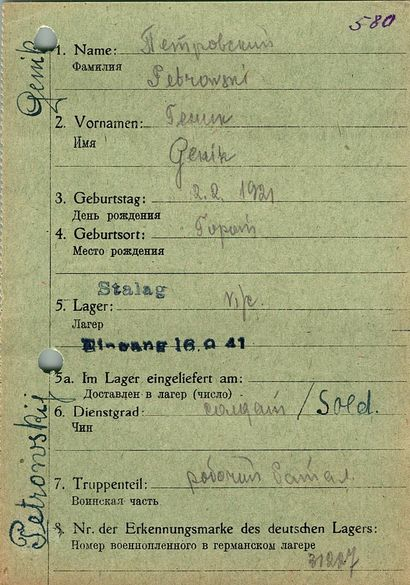 580
1. Name: Петровский
Фамилия
Petrowski
2. Vornamen: Геник
Имя
Genik
3. Geburtstag: 2.2. 1921
День рождения
4. Geburtsort:
Место рождения
Stalag
5. Lager: VI/c.
Лагер
Eingang 16.9.41
5a. Im Lager eingeliefert am:
Доставлен в лагер (число)
6. Dienstgrad: солдат / Sold.
Чин
7. Truppenteil: робочий батал.
Воинская часть
8. Nr. der Erkennungsmarke des deutschen Lagers:
Номер военнопленного в германском лагере
31227
Genik
Petrowskij